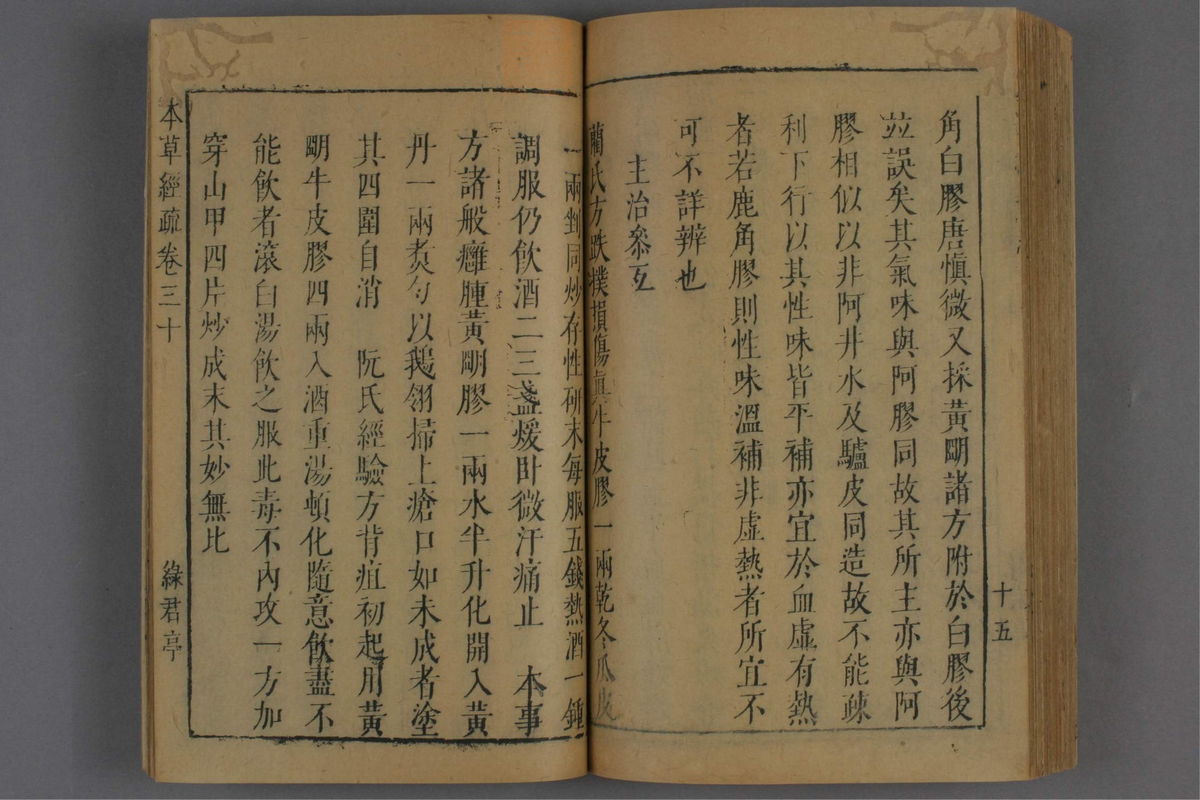 角白膠唐慎微又採黃明諸方附於白膠後
並誤矣其氣味與阿膠同故其所主亦與阿
膠相似以非阿井水及驢皮同造故不能疎
利下行以其性味皆平補亦宜於血虛有熱
者若鹿角膠則性味溫補非虛熱者所宜不
可不詳辨也
主治叅互
藺氏方跌撲損傷真牛皮膠一兩乾冬瓜皮
一兩剉同炒存性研末每服五錢熱酒一鍾
調服仍飲酒二三盞煖臥微汗痛止　本事
方諸般癰腫黃明膠一兩水半升化開入黃
丹一兩煑勻以鵝翎掃上瘡口如未成者塗
其四圍自消　阮氏經驗方背疽初起用黃
明牛皮膠四兩入酒重湯頓化隨意飲盡不
能飲者滾白湯飲之服此毒不內攻一方加
穿山甲四片炒成末其妙無比
十五
本草經疏卷三十
綠君亭